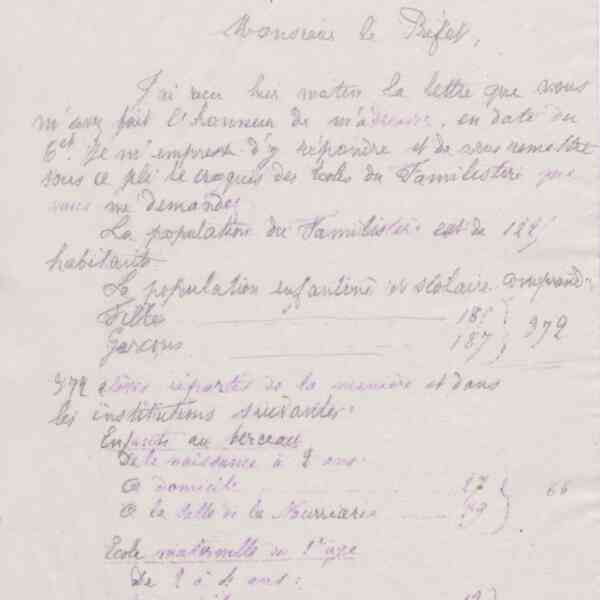 Monsieur le Préfet,
J'ai reçu hier matin la lettre que vous
m'avez fait l'honneur de m'adresser, en date du
6 ct. Je m'empresse d'y répondre et de vous remettre
sous ce pli le croquis des écoles du Familistère que
vous me demandez
La population du Familistère est de
habitants
La population enfantine et scolaire comprend:
Filles 185
Garçons 187 } 372
372 élèves répartis de la manière et dans
les institutions suivantes:
Enfants au berceau
De la naissance à 2 ans:
à domicile 27
à la salle de la Nourricerie 39 } 66
Ecole maternelle du 1er age
De 2 à 4 ans: